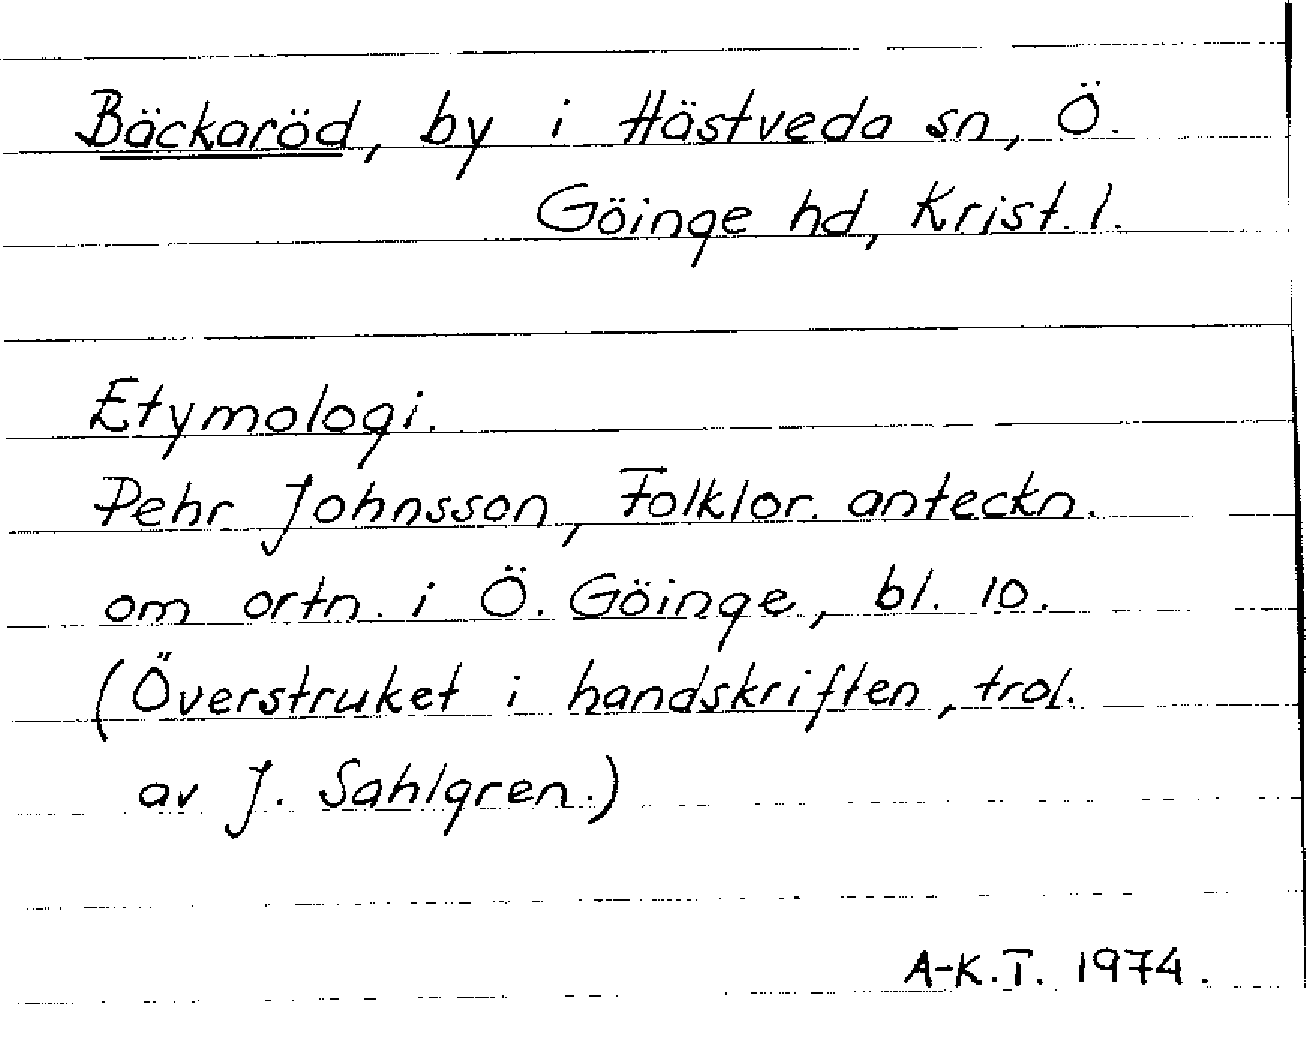 Bäckaröd, by i Hästveda sn, Ö.
Göinge hd, Krist. l.
Etymologi.
Pehr Johnsson, Folklor. anteckn.
om ortn. i Ö. Göinge, bl. 10.
(Överstruket i handskriften, trol.
av J. Sahlgren.)
A-K.T. 1974.